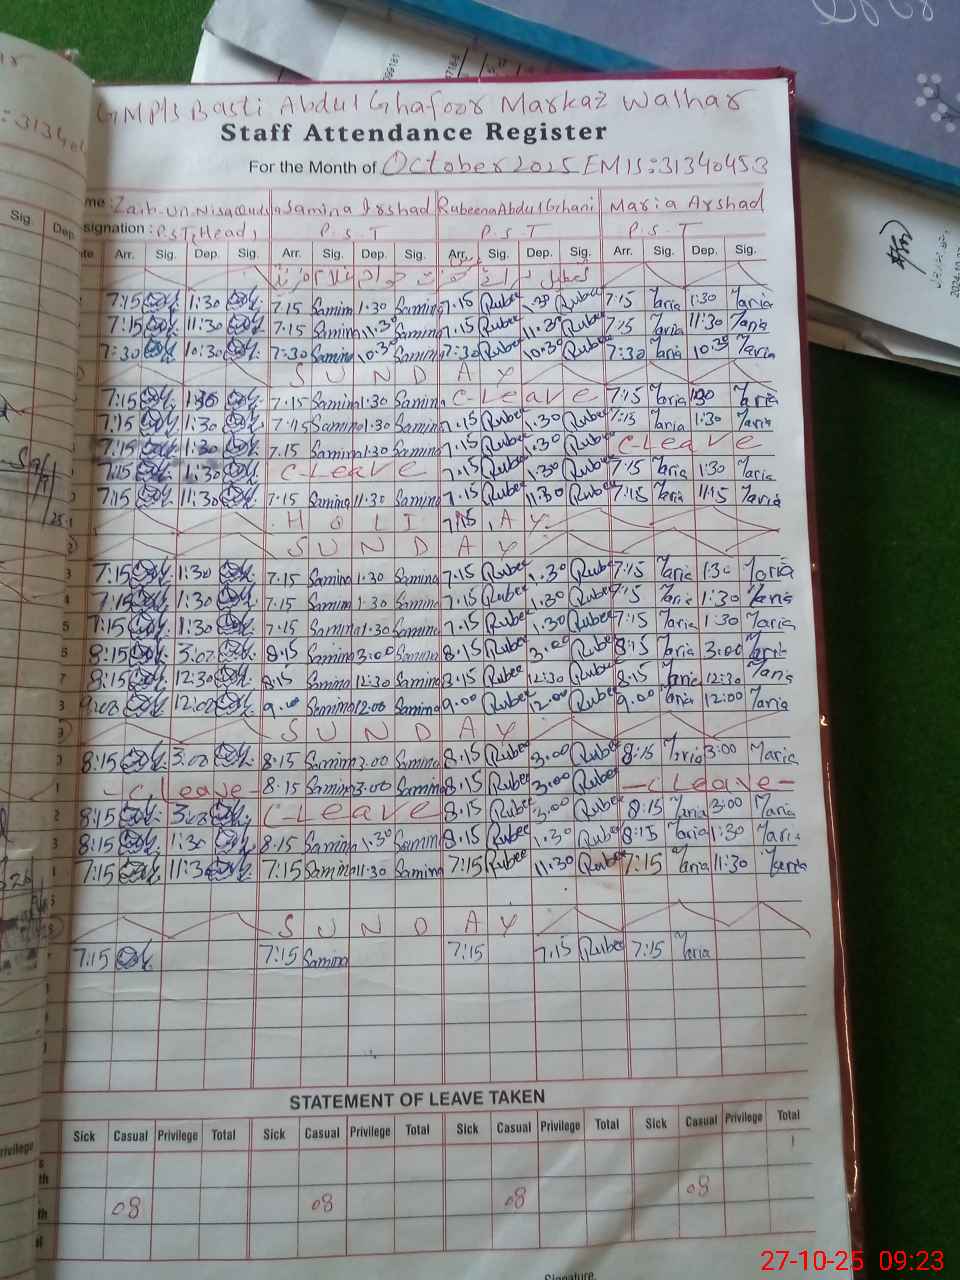 GMP/S Basti Abdul Ghafoor Markaz Walhar
Staff Attendance Register
For the Month of October 2025 EMIS:31340453
me: Zaib-un-Nisa Samina Irshad Rubeena Abdul Ghani Maria Arshad
signation: P.S.T, Head, P.S.T P.S.T P.S.T
Arr. Sig. Dep. Sig. Arr. Sig. Dep. Sig. Arr. Sig. Dep. Sig. Arr. Sig. Dep. Sig.
7:15 1:30 7.15 Samina 1.30 Samina 7.15 Rubee 1.30 Rubee 7:15 Maria 1:30 Maria
7:15 11:30 7.15 Samina 11.30 Samina 7.15 Rubee 11.30 Rubee 7:15 Maria 11:30 Maria
7:30 10:30 7:30 Samina 10.30 Samina 7:30 Rubee 10:30 Rubee 7:30 Maria 10:30 Maria
S U N D A Y
7:15 1:30 7.15 Samina 1:30 Samina C-Leave 7:15 Maria 1:30 Maria
7:15 1:30 7:15 Samina 1.30 Samina 7.15 Rubee 1.30 Rubee 7:15 Maria 1:30 Maria
7:15 1:30 7.15 Samina 1.30 Samina 7.15 Rubee 1.30 Rubee C-Leave
7:15 1:30 C-Leave 7.15 Rubee 1.30 Rubee 7:15 Maria 1:30 Maria
7:15 11:30 7.15 Samina 11.30 Samina 7.15 Rubee 11.30 Rubee 7:15 Maria 11:15 Maria
H O L I 7:15 A Y
S U N D A Y
7:15 1:30 7.15 Samina 1.30 Samina 7.15 Rubee 1.30 Rubee 7:15 Maria 1:30 Maria
7:15 1:30 7.15 Samina 1:30 Samina 7.15 Rubee 1.30 Rubee 7:15 Maria 1:30 Maria
7:15 1:30 7.15 Samina 1.30 Samina 7.15 Rubee 1.30 Rubee 7:15 Maria 1:30 Maria
8:15 3:00 8.15 Samina 3:00 Samina 8.15 Rubee 3:00 Rubee 8:15 Maria 3:00 Maria
8:15 12:30 8.15 Samina 12:30 Samina 8.15 Rubee 12:30 Rubee 8:15 Maria 12:30 Maria
9:00 12:00 9.00 Samina 12:00 Samina 9.00 Rubee 12.00 Rubee 9.00 Maria 12:00 Maria
S U N D A Y
8:15 3:00 8.15 Samina 3.00 Samina 8.15 Rubee 3.00 Rubee 8:15 Maria 3:00 Maria
-C.Leave- 8.15 Samina 3.00 Samina 8.15 Rubee 3:00 Rubee -C Leave-
8:15 3:00 C Leave 8.15 Rubee 3:00 Rubee 8:15 Maria 3:00 Maria
8:15 1:30 8.15 Samina 1.30 Samina 8.15 Rubee 1.30 Rubee 8:15 Maria 1:30 Maria
7:15 11:30 7:15 Samina 11:30 Samina 7:15 Rubee 11:30 Rubee 7:15 Maria 11:30 Maria
S U N D A Y
7:15 7:15 Samina 7:15 7.15 Rubee 7:15 Maria
STATEMENT OF LEAVE TAKEN
Sick Casual Privilege Total Sick Casual Privilege Total Sick Casual Privilege Total Sick Casual Privilege Total
08 08 08 08
Signature.
27-10-25 09:23